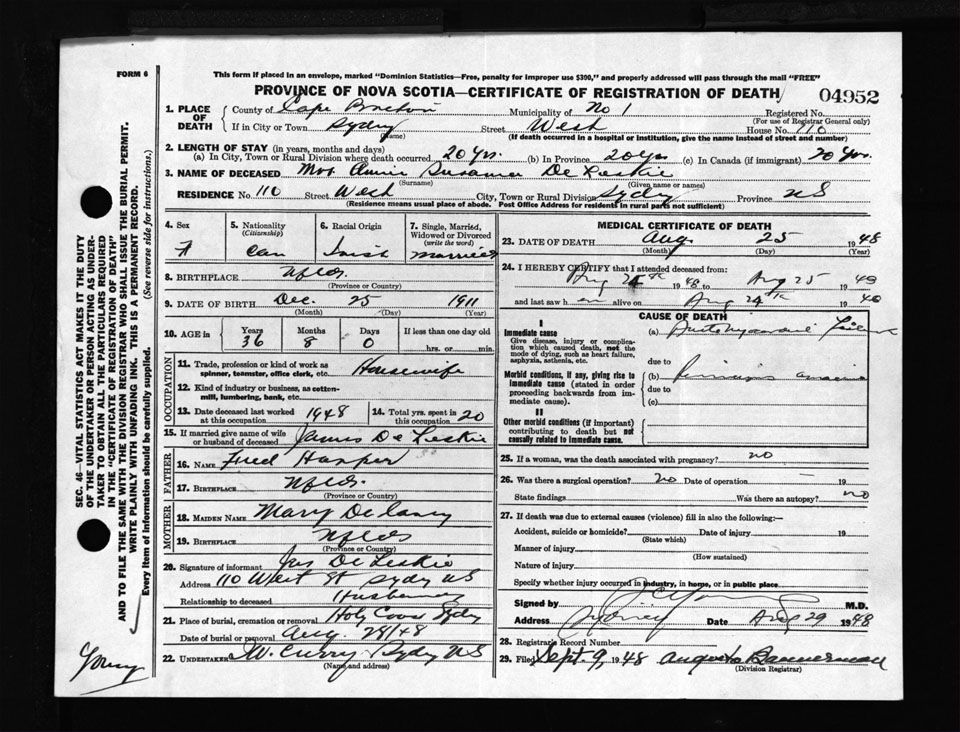 FORM 6
This form if placed in an envelope, marked "Dominion Statistics—Free, penalty for improper use $300," and properly addressed will pass through the mail "FREE"
PROVINCE OF NOVA SCOTIA—CERTIFICATE OF REGISTRATION OF DEATH 04952
1. PLACE OF DEATH County of Cape Breton Municipality of No 1 Registered No.
(For use of Registrar General only)
If in City or Town Sydney Street West House No. 110
(Name) (If death occurred in a hospital or institution, give the name instead of street and number)
2. LENGTH OF STAY (in years, months and days)
(a) In City, Town or Rural Division where death occurred 20 Yrs. (b) In Province 20 Yrs (c) In Canada (if immigrant) 20 Yrs.
3. NAME OF DECEASED Mrs Annie Susanna De Leskie
(Surname) (Given name or names)
RESIDENCE No. 110 Street West City, Town or Rural Division Sydney Province NS
(Residence means usual place of abode. Post Office Address for residents in rural parts not sufficient)
SEC. 46—VITAL STATISTICS ACT MAKES IT THE DUTY
OF THE UNDERTAKER OR PERSON ACTING AS UNDER-
TAKER TO OBTAIN ALL THE PARTICULARS REQUIRED
IN THE "CERTIFICATE OF REGISTRATION OF DEATH"
AND TO FILE THE SAME WITH THE DIVISION REGISTRAR WHO SHALL ISSUE THE BURIAL PERMIT.
WRITE PLAINLY WITH UNFADING INK. THIS IS A PERMANENT RECORD.
Every item of information should be carefully supplied. (See reverse side for instructions.)
4. Sex F
5. Nationality (Citizenship) Can
6. Racial Origin Irish
7. Single, Married, Widowed or Divorced (write the word) Married
8. BIRTHPLACE Nfld.
(Province or Country)
9. DATE OF BIRTH Dec. 25 1911
(Month) (Day) (Year)
10. AGE in Years 36 Months 8 Days 0 If less than one day old
hrs. or min.
OCCUPATION
11. Trade, profession or kind of work as spinner, teamster, office clerk, etc. Housewife
12. Kind of industry or business, as cotton-mill, lumbering, bank, etc.
13. Date deceased last worked at this occupation 1948 14. Total yrs. spent in 20
15. If married give name of wife or husband of deceased James De Leskie
FATHER
16. NAME Fred Harper
17. BIRTHPLACE Nfld.
(Province or Country)
MOTHER
18. MAIDEN NAME Mary Delaney
19. BIRTHPLACE Nfld
(Province or Country)
20. Signature of informant Jas De Leskie
Address 110 West St Sydy NS
Relationship to deceased Husband
21. Place of burial, cremation or removal Holy Cross Sydy
Date of burial or removal Aug. 28/48
22. UNDERTAKER W. Curry Sydy NS
(Name and address)
MEDICAL CERTIFICATE OF DEATH
23. DATE OF DEATH Aug 25 1948
(Month) (Day) (Year)
24. I HEREBY CERTIFY that I attended deceased from:
Aug 24th 1948 to Aug 25 19
and last saw her alive on Aug 24th 19
CAUSE OF DEATH
I
Immediate cause (a)
Give disease, injury or complica-
tion which caused death, not the
mode of dying, such as heart failure,
asphyxia, asthenia, etc. due to
Morbid conditions, if any, giving rise to (b) Pernicious anaemia
immediate cause (stated in order
proceeding backwards from im-
mediate cause). due to
(c)
II
Other morbid conditions (if important)
contributing to death but not
causally related to immediate cause.
25. If a woman, was the death associated with pregnancy? no
26. Was there a surgical operation? no Date of operation 19
State findings Was there an autopsy? no
27. If death was due to external causes (violence) fill in also the following:—
Accident, suicide or homicide? Date of injury 19
(State which)
Manner of injury
(How sustained)
Nature of injury
Specify whether injury occurred in industry, in home, or in public place
Signed by M.D.
Address Sydney Date Aug 29 1948
28. Registrar's Record Number
29. Filed Sept. 9, 1948 Bannerman
(Division Registrar)